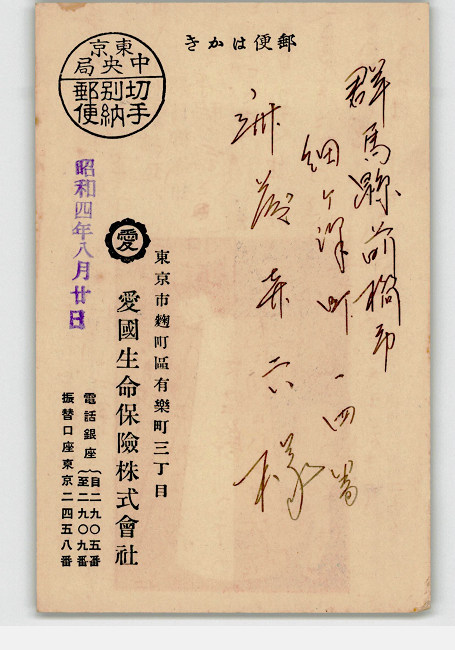 郵便はかき
群馬縣前橋市
細ケ澤町一四番
六様
東京中央局
切手別納郵便
昭和四年八月廿日
愛
東京市麴町區有樂町三丁目
愛國生命保險株式會社
電話銀座（自二九〇五番至二九〇九番）
振替口座東京二四五八番